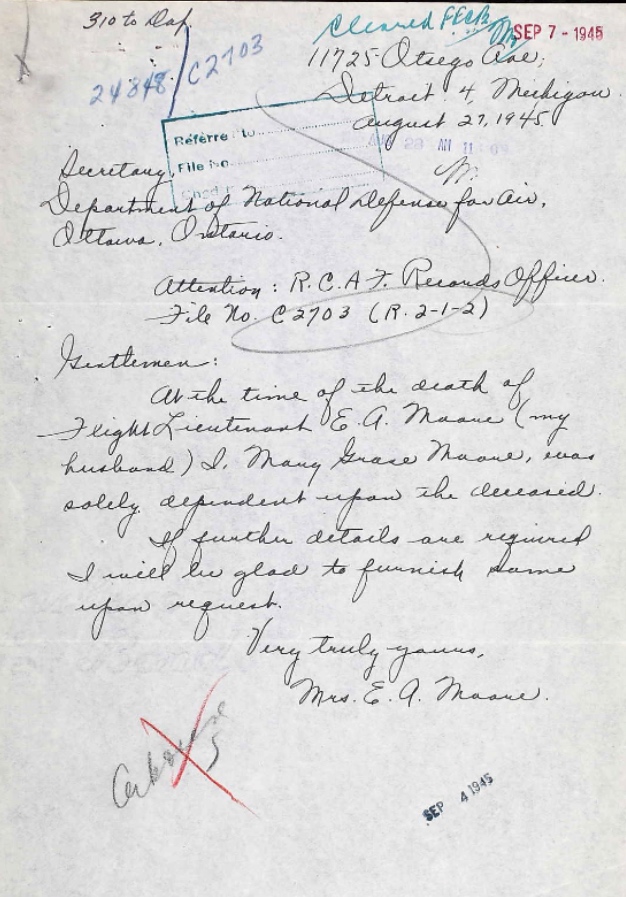 310 to Dap
Cleared
SEP 7 - 1945
24848/C2703
11725 Otsego Ave;
Detroit 4, Michigan.
August 27, 1945.
Referred to
File No.
Secretary,
Department of National Defense for Air,
Ottawa, Ontario.
Attention: R.C.A.F. Records Officer.
File No. C2703 (R.2-1-2)
Gentlemen:
At the time of the death of
Flight Lieutenant E. A. Moore (my
husband) I, Mary Grace Moore, was
solely dependent upon the deceased.
If further details are required
I will be glad to furnish same
upon request.
Very truly yours,
Mrs. E. A. Moore.
SEP 4 1945